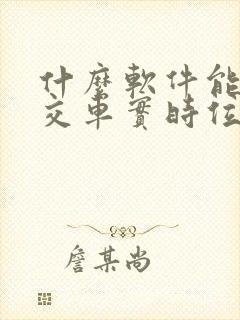 什麼軟件能
交車實時位
詹某尚